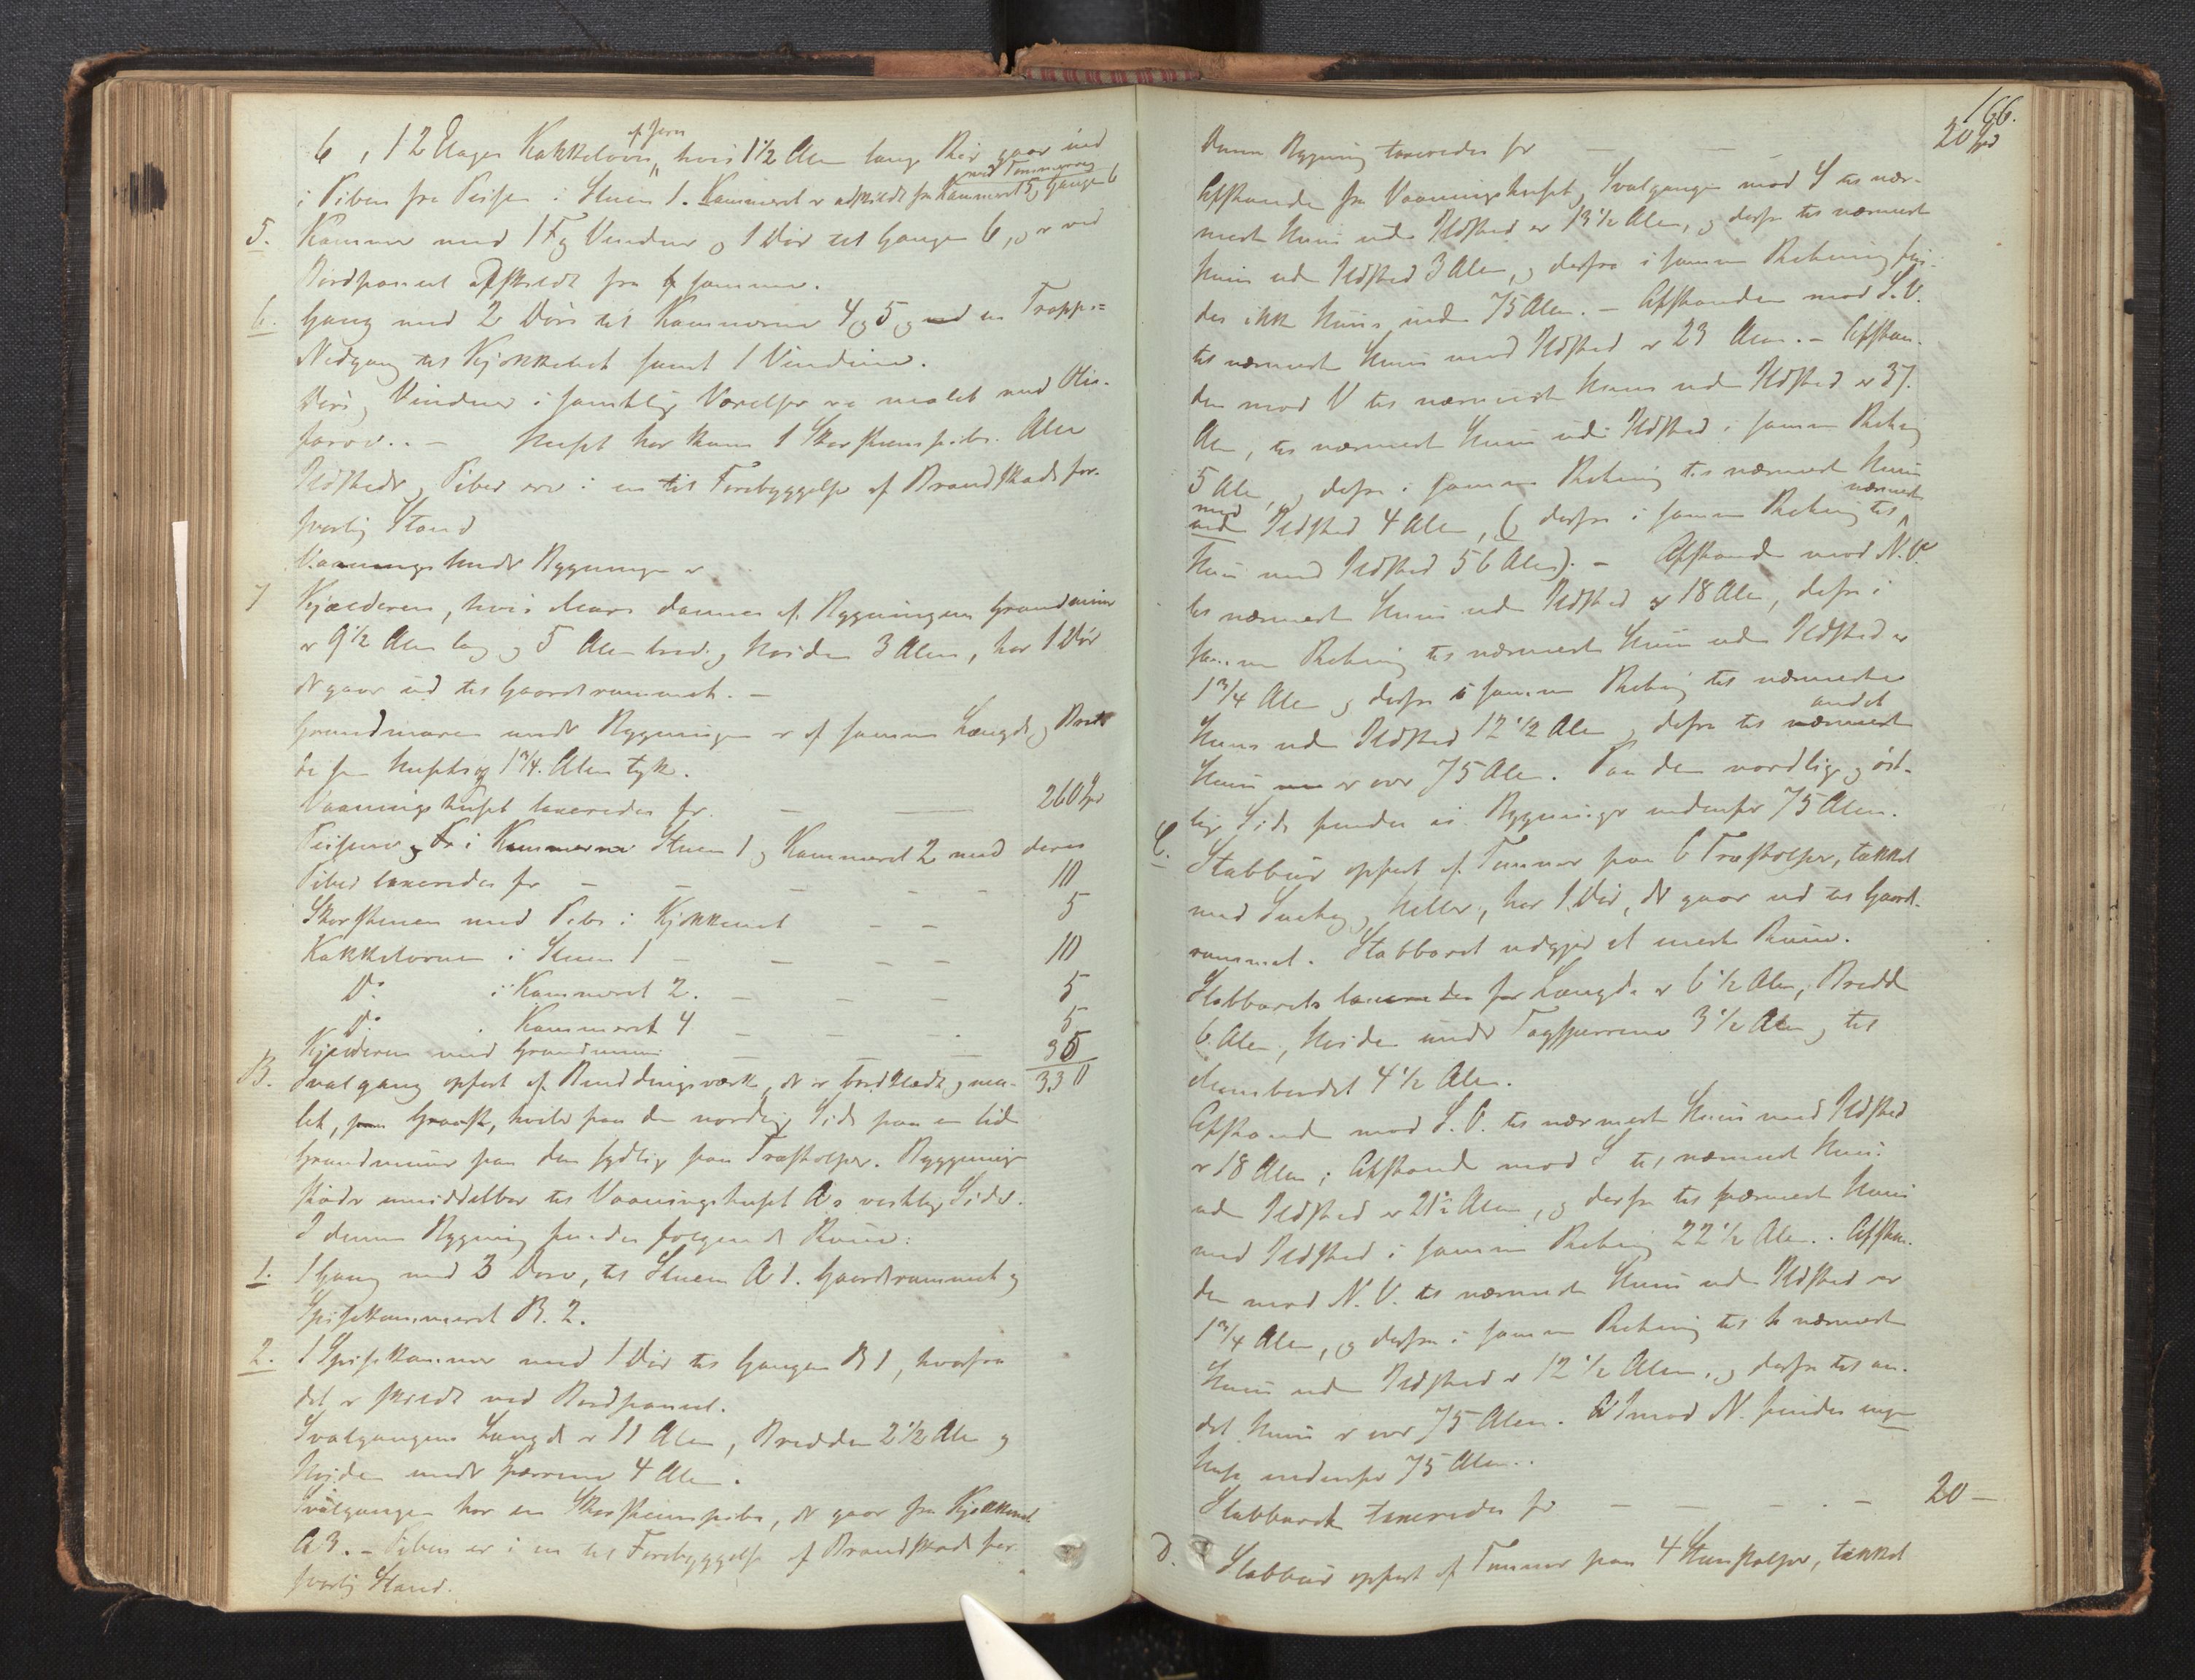 6, 1 2 Etages Kakkelovn af Jern, hvis 1 1/2 Alen lange Rør gaar ind
i Piben fra Peisen i Stuen 1. Kammeret er adskildt fra Kammeret 5 og Gangen 6 ved Tømmervæg
5. Kammer med 1 Fg Vinduer og 1 Dør til Gangen 6, og er ved
Bordpaneel afskildt fra samme.
6. Gang med 2 Døre til Kammerne 4 og 5 og en Trappe=
Nedgang til Kjøkkenet samt 1 Vindue.
Døre og Vinduer i samtlige Værelser ere malet med Olie-
farve. - Huset har kun 1 Skorsteenspibe. Alle
Ildsteder og Piber ere i en til Forebyggelse af Brandskade for-
svarlig Stand
Vaaningshuus Bygningen er
7 Kjælderen, hvis Mure dannes af Bygningens Grundmuur
er 9 1/2 Alen lang og 5 Alen bred og Høiden 3 Alen, har 1 Dør
der gaar ud til Gaardsrummet. -
Grundmuren under Bygningen er af samme Længde og Bred-
de som Husets og 1 3/4 Alen tyk.
Vaaningshuset taxeredes for - - 260 Spd
Peisene i Stuen 1 og Kammeret 2 med deres
Piber taxeredes for - - - - - 10
Skorstenen med Pibe i Kjøkkenet - - 5
Kakkelovnen i Stuen 1 - - - - 10
Do i Kammeret 2. - - - 5
Do i Kammeret 4 - - - 5
Kjælderen med Grundmuur - - - 35
330
B. Svalgang opført af Bindingsværk, der er bordklædt og ma-
let, hviler paa den nordlige Side paa en liden
Grundmuur paa den sydlige paa Træstolper. Bygningen
støder umiddelbar til Vaaningshuset A's vestlige Side.
I denne Bygning findes følgende Rum:
1. 1 Gang med 3 Døre, til Stuen A 1. Gaardsrummet og
Spiskammeret B. 2.
2. 1 Spiskammer med 1 Dør til Gangen B 1, hvorfra
det er skildt ved Bordpaneel.
Svalgangens Længde er 11 Alen, Bredden 2 1/2 Alen og
Høiden under Sperrene 4 Alen.
Svalgangen har en Skorsteenspibe, der gaar fra Kjøkkenet
A 3. - Piben er i en til Forebyggelse af Brandskade for-
svarlig Stand.
166.
Denne Bygning taxeredes for - - - 20 Spd
Afstanden fra Vaaningshuset og Svalgangen mod S til nær-
meste Huus uden Ildsted er 13 1/2 Alen, og derfra til nærmeste
Huus uden Ildsted 3 Alen, og derfra i samme Retning fin-
des ikke Huus inden 75 Alen. - Afstanden mod S.V.
til nærmeste Huus med Ildsted er 23 Alen. - Afstan-
den mod V til nærmeste Huus uden Ildsted er 37
Alen, til nærmeste Huus uden Ildsted i samme Retning
5 Alen, og derfra i samme Retning til nærmeste Huus
med Ildsted 4 Alen, (og derfra i samme Retning til nærmeste
Huus med Ildsted 56 Alen). - Afstanden mod N.V.
til nærmeste Huus uden Ildsted er 18 Alen, derfra i
samme Retning til nærmeste Huus uden Ildsted er
1 3/4 Alen og derfra i samme Retning til nærmeste
Huus uden Ildsted 12 1/2 Alen og derfra til andet
Huus er over 75 Alen. Paa den nordlige og øst-
lige Side findes ei Bygninger indenfor 75 Alen.
C. Stabbuur opført af Tømmer paa 6 Træstolper, tækket
med Heller, har 1 Dør, der gaar ud til Gaards-
rummet. Stabburet udgjør et eneste Rum.
Stabburets Længde er 6 1/2 Alen, Bredde
6 Alen, Høiden under Tagsperrene 3 1/2 Alen og til
4 1/2 Alen.
Afstanden mod S.V. til nærmeste Huus med Ildsted
er 18 Alen; Afstanden mod S til nærmeste Huus
uden Ildsted er 21 1/2 Alen, og derfra til nærmeste Huus
med Ildsted i samme Retning 22 1/2 Alen. Afstan-
den mod N.V. til nærmeste Huus uden Ildsted er
1 3/4 Alen, og derfra i samme Retning til nærmeste
Huus uden Ildsted er 12 1/2 Alen, og derfra til an-
det Huus er over 75 Alen. mod N. findes ingen
Huse indenfor 75 Alen.
Stabburet taxeredes for - - - - 20 -
D. Stabbuur opført af Tømmer paa 4 Steenstolper, tækket